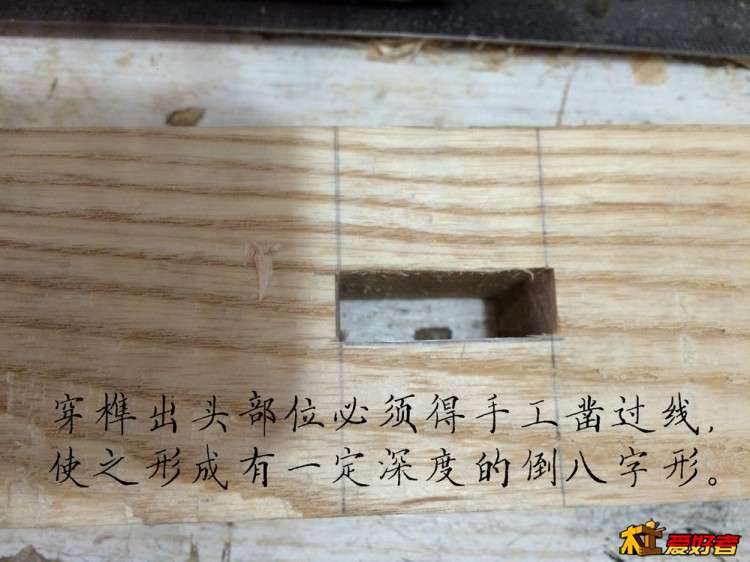 穿榫出头部位必须得手工凿过线,
使之形成有一定深度的倒八字形。
木工爱好者